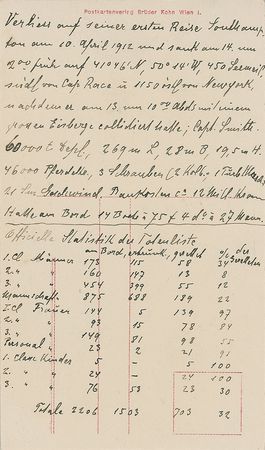 Postkartenverlag Brüder Kohn Wien I.
Verliess auf seiner ersten Reise Southamp-
ton am 10. April 1912 und sank am 14. um
2.00 früh auf 41°46' N. 50°14' W, 450 Seemeil.
südl von Cap Race u 1150 östl von Newyork,
nachdem er am 13. um 10h Abds mit einem
grossen Eisberge collidiert hatte; Capt. Smith.
60000 t Depl, 269 m L, 28 m B, 19.5 m H.
46000 Pferdekr, 3 Schrauben (2 Kolb, 1 Turb Masch)
21 Sm Geschwind. Baukosten ca 12 Mill. Kron
Hatte am Bord 14 Boote à 75 & 4 do à 27 Mann.
Officielle Statistik der Totenliste
am Bord, ertrunk, gerettet % der Geretteten
I. Cl Männer 173 115 58 34
2. " " 160 147 13 8
3. " " 454 399 55 12
Mannschaft 875 688 189 22
I. Cl Frauen 144 5 139 97
2. " " 93 15 78 84
3. " " 149 81 98 55
Personal " 23 2 21 91
1. Classe Kinder 5 - 5 100
2. " " 24 - 24 100
3. " " 76 53 23 30
Totale 2206 1503 703 32